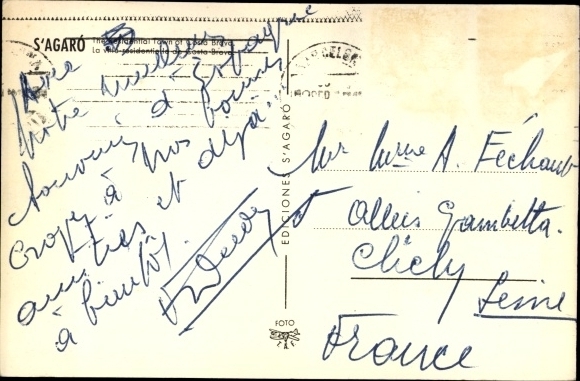 S'AGARÓ The Residential Town of Costa Brava.
La ville résidentielle de Costa Brava.
BARCELONA
votre meilleur
souvenir d'Espagne
Croyez à nos bonnes
amitiés et déjà
à bientôt.
EDICIONES S'AGARÓ
FOTO
Mr Mme A. Féchant
Allées Gambetta.
Clichy
Seine
France